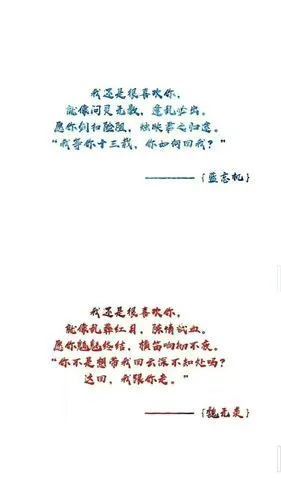 我还是很喜欢你，
就像问灵无数，逢乱必出。
愿你剑扫险阻，烛映君之归途。
“我等你十三载，你如何回我？”
——{蓝忘机}
我还是很喜欢你，
就像乱葬红月，陈情试血。
愿你魑魅终结，横笛响彻不夜。
“你不是想带我回云深不知处吗？
这回，我跟你走。”
——{魏无羡}